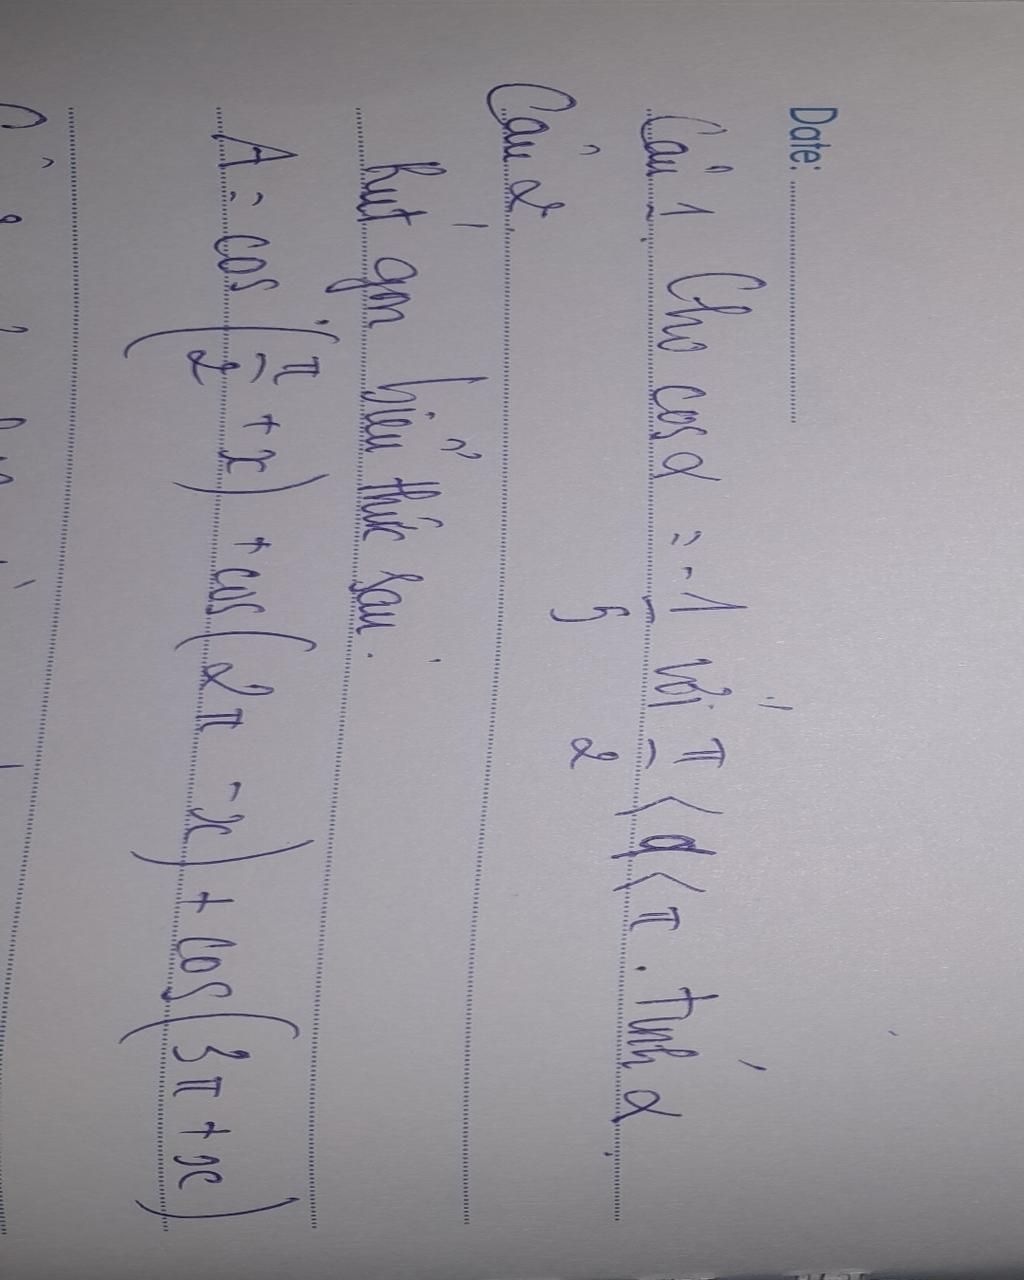 Date:
Câu 1. Cho cos α = -1/5 với π/2 < α < π. Tính α.
Câu 2.
Rút gọn biểu thức sau:
A = cos(π/2 + x) + cos(2π - x) + cos(3π + x)